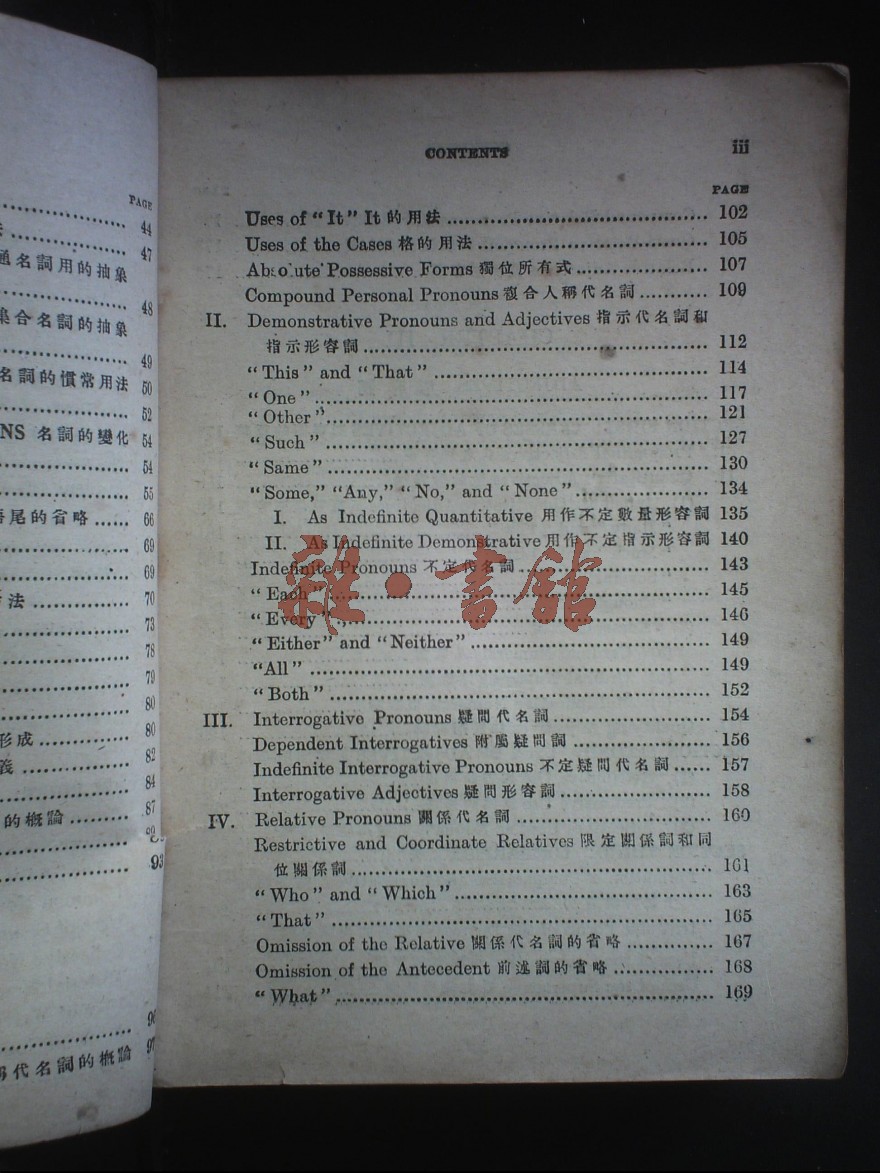 PAGE
44
47
通名詞用的抽象
48
集合名詞的抽象
49
名詞的慣常用法 50
52
NS 名詞的變化 54
54
55
語尾的省略 ...... 66
69
69
法 ............ 70
73
78
79
80
形成 ............ 80
義 ............ 82
84
的概論 ......... 87
93
96
代名詞的概論 97
CONTENTS iii
PAGE
Uses of “It” It 的用法 ........................ 102
Uses of the Cases 格的用法 ........................ 105
Absolute Possessive Forms 獨位所有式 .................. 107
Compound Personal Pronouns 複合人稱代名詞 ........... 109
II. Demonstrative Pronouns and Adjectives 指示代名詞和
指示形容詞 ........................ 112
“This” and “That” ........................ 114
“One” ........................ 117
“Other” ........................ 121
“Such” ........................ 127
“Same” ........................ 130
“Some,” “Any,” “No,” and “None” .................. 134
I. As Indefinite Quantitative 用作不定數量形容詞 135
II. As Indefinite Demonstrative 用作不定指示形容詞 140
Indefinite Pronouns 不定代名詞 ........................ 143
“Each” ........................ 145
“Every” ........................ 146
“Either” and “Neither” ........................ 149
“All” ........................ 149
“Both” ........................ 152
III. Interrogative Pronouns 疑問代名詞 .................. 154
Dependent Interrogatives 附屬疑問詞 .................. 156
Indefinite Interrogative Pronouns 不定疑問代名詞 ...... 157
Interrogative Adjectives 疑問形容詞 .................. 158
IV. Relative Pronouns 關係代名詞 ........................ 160
Restrictive and Coordinate Relatives 限定關係詞和同
位關係詞 ........................ 161
“Who” and “Which” ........................ 163
“That” ........................ 165
Omission of the Relative 關係代名詞的省略 ............ 167
Omission of the Antecedent 前述詞的省略 ............... 168
“What” ........................ 169
雜·書館